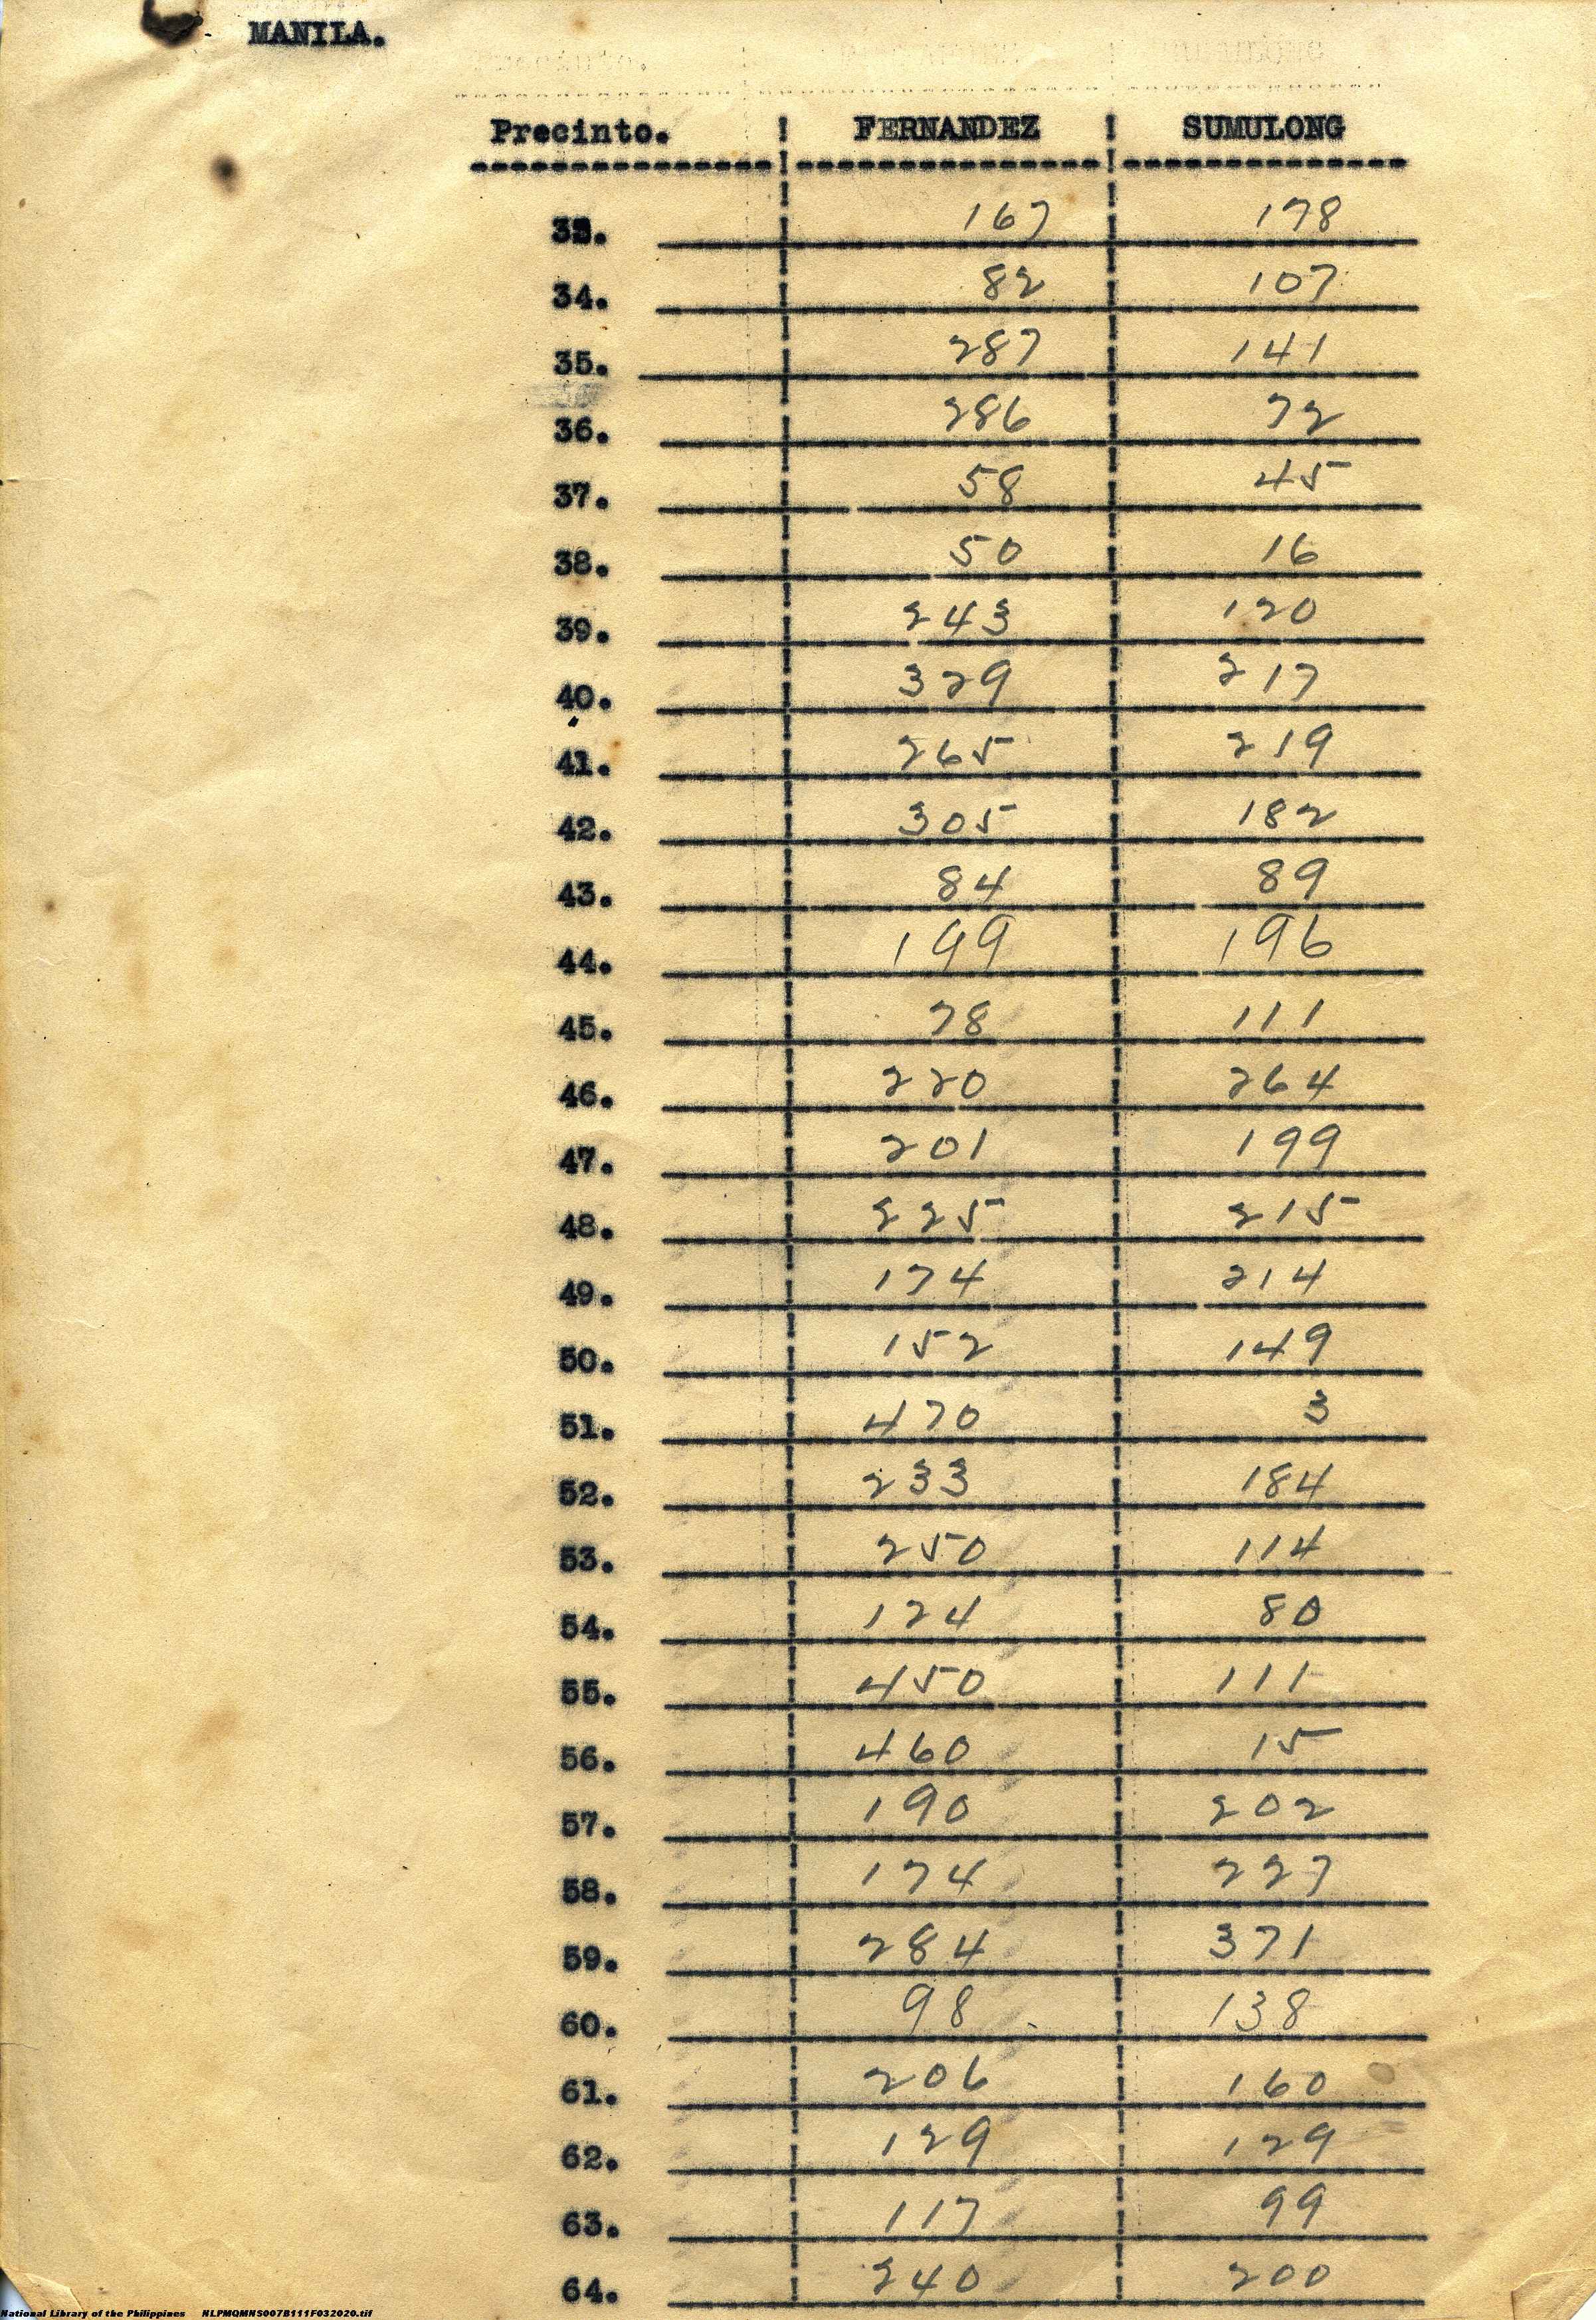 MANILA.
Precinto. ! FERNANDEZ ! SUMULONG
33. 167 178
34. 82 107
35. 287 141
36. 286 72
37. 58 45
38. 50 16
39. 243 120
40. 329 217
41. 265 219
42. 305 182
43. 84 89
44. 199 196
45. 78 111
46. 220 264
47. 201 199
48. 225 215
49. 174 214
50. 152 149
51. 470 3
52. 233 184
53. 250 114
54. 124 80
55. 450 111
56. 460 15
57. 190 202
58. 174 227
59. 284 371
60. 98 138
61. 206 160
62. 129 129
63. 117 99
64. 240 200
National Library of the Philippines NLPMQMNS007B111F032020.tif